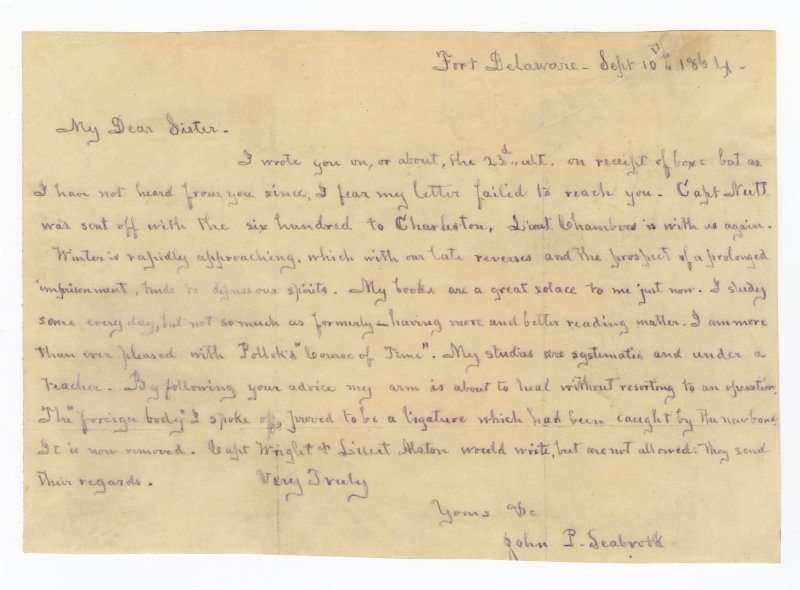 Fort Delaware - Sept 10th 1864 -
My Dear Sister -
I wrote you on, or about, the 23d ult. on receipt of box: but as
I have not heard from you since, I fear my letter failed to reach you - Capt Nutt
was sent off with the six hundred to Charleston, Lieut Chambers is with us again.
Winter is rapidly approaching, which with our late reverses and the prospect of a prolonged
imprisonment, tends to depress our spirits. My books are a great solace to me just now. I study
some every day, but not so much as formerly - having more and better reading matter. I am more
than ever pleased with Pollok's "Course of Time". My studies are systematic and under a
teacher. By following your advice my arm is about to heal without resorting to an operation.
The "foreign body" I spoke of proved to be a ligature which had been caught by the new bone.
It is now removed. Capt Wright & Lieut Alston would write, but are not allowed: They send
their regards. Very Truly
Yours &c
John P. Seabrook